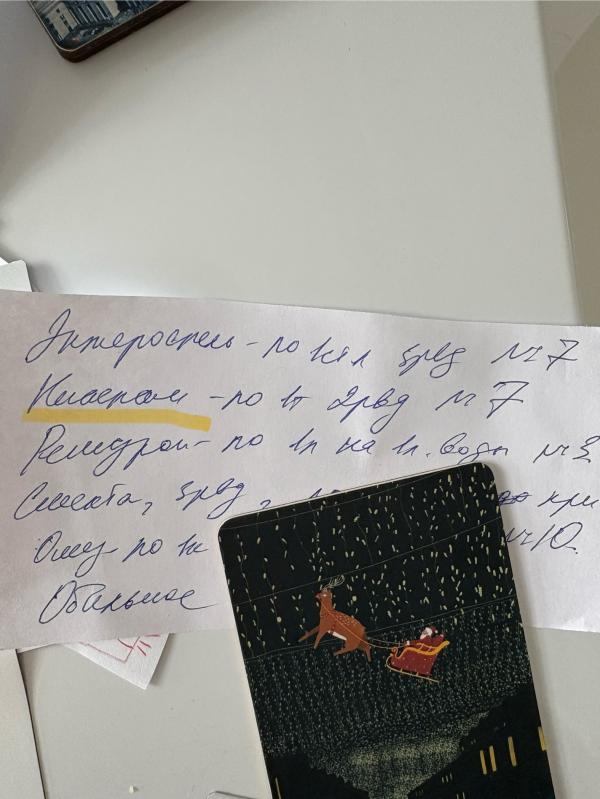 Энтеросгель - по 1ст.л 3рвд №7
- по 1т 2рвд №7
Регидрон - по 1п на 1л. воды №3
Смекта, 3рвд,
Омез - по 1к №10.
Обильное